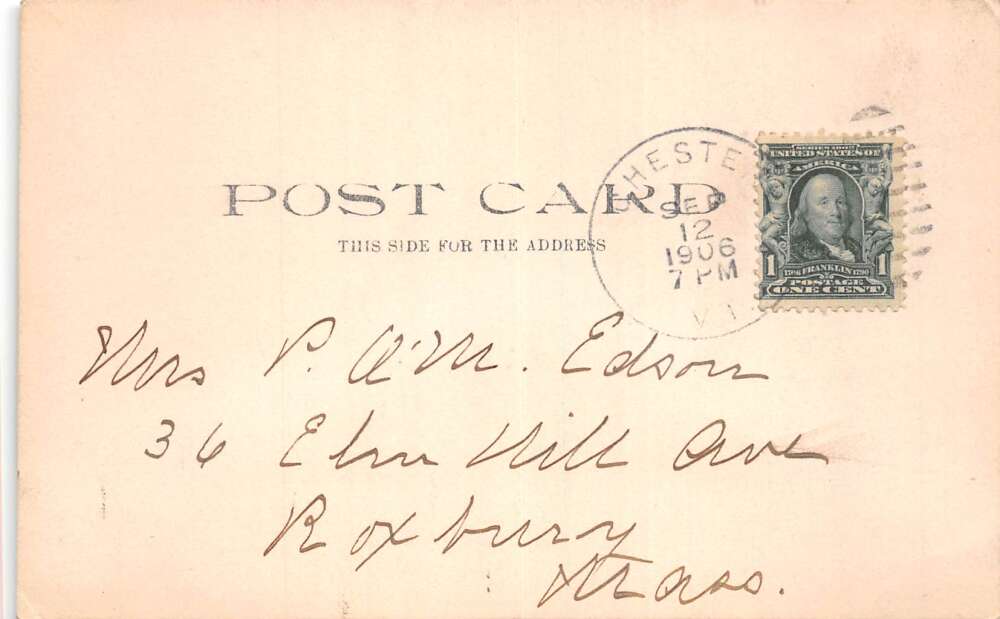 POST CARD
THIS SIDE FOR THE ADDRESS
CHESTE
SEP
12
1906
7 PM
VT
SERIES 1902
UNITED STATES OF
AMERICA
1 1706 FRANKLIN 1790 1
POSTAGE
ONE CENT
Mrs P. O'M. Edson
36 Elm Hill Ave
Roxbury
Mass.